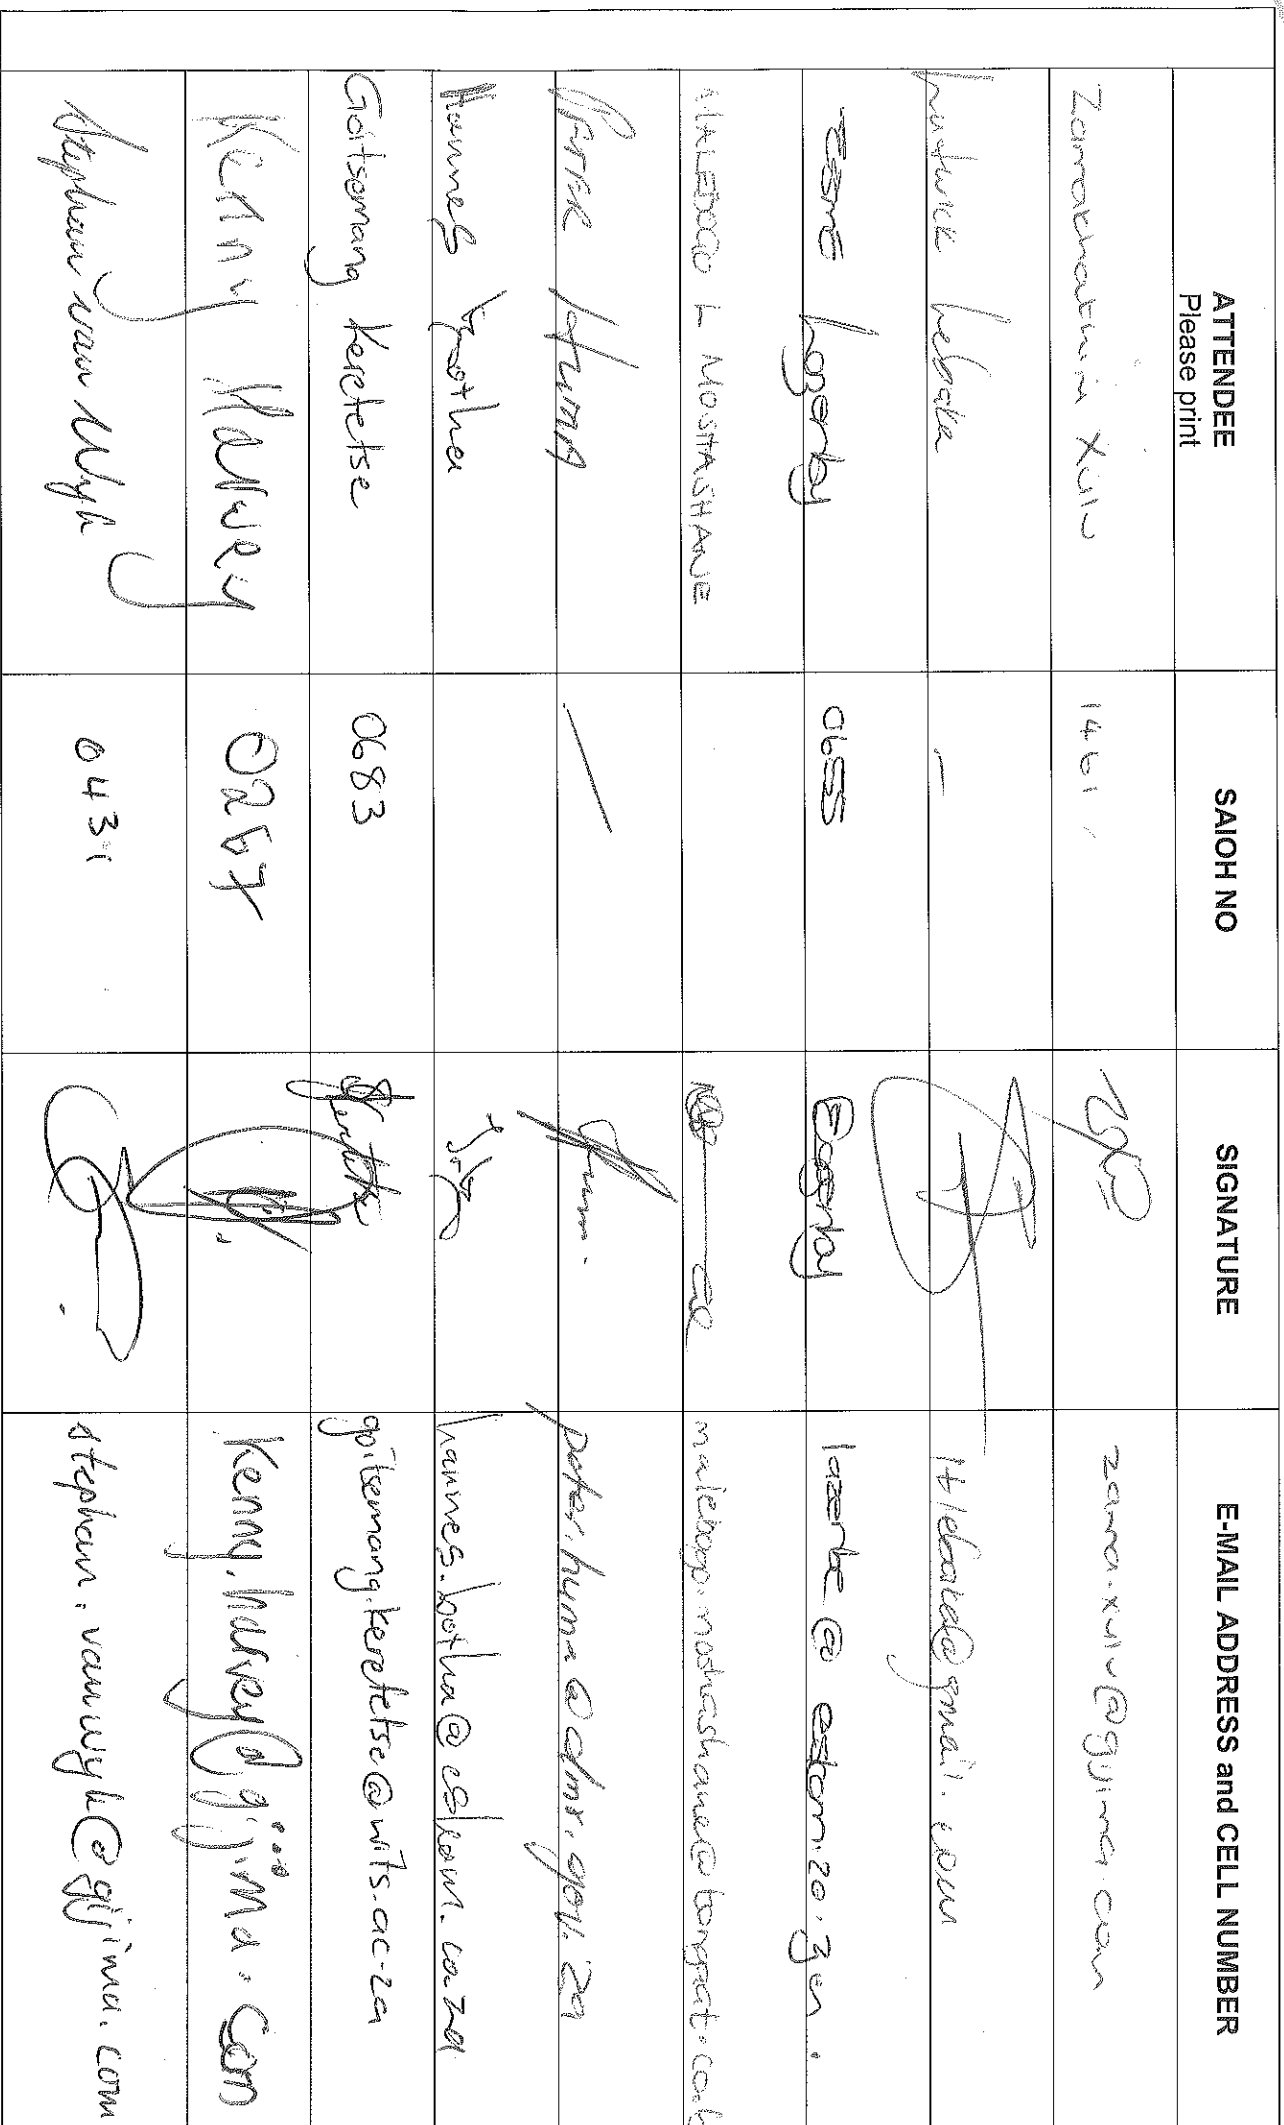 ATTENDEE SAIOH NO SIGNATURE E-MAIL ADDRESS and CELL NUMBER
Please print
Zamakhathini Xulu 1461 zama.xulu@gijima.com
Lebaka - @gmail.com
Esmé Lagerby 0655 lazerbe@
MALEBOGO L MOSHASHANE malebogo.moshashane@
PETER HUMA / peter.huma@dmr.gov.za
Hannes Botha hannes.botha@eskom.co.za
Goitsemang Keretetse 0683 goitsemang.keretetse@wits.ac.za
Kenny Harvey 0267 Kenny.harvey@gijima.com
Stephan van Wyk 0431 stephan.vanwyk@gijima.com